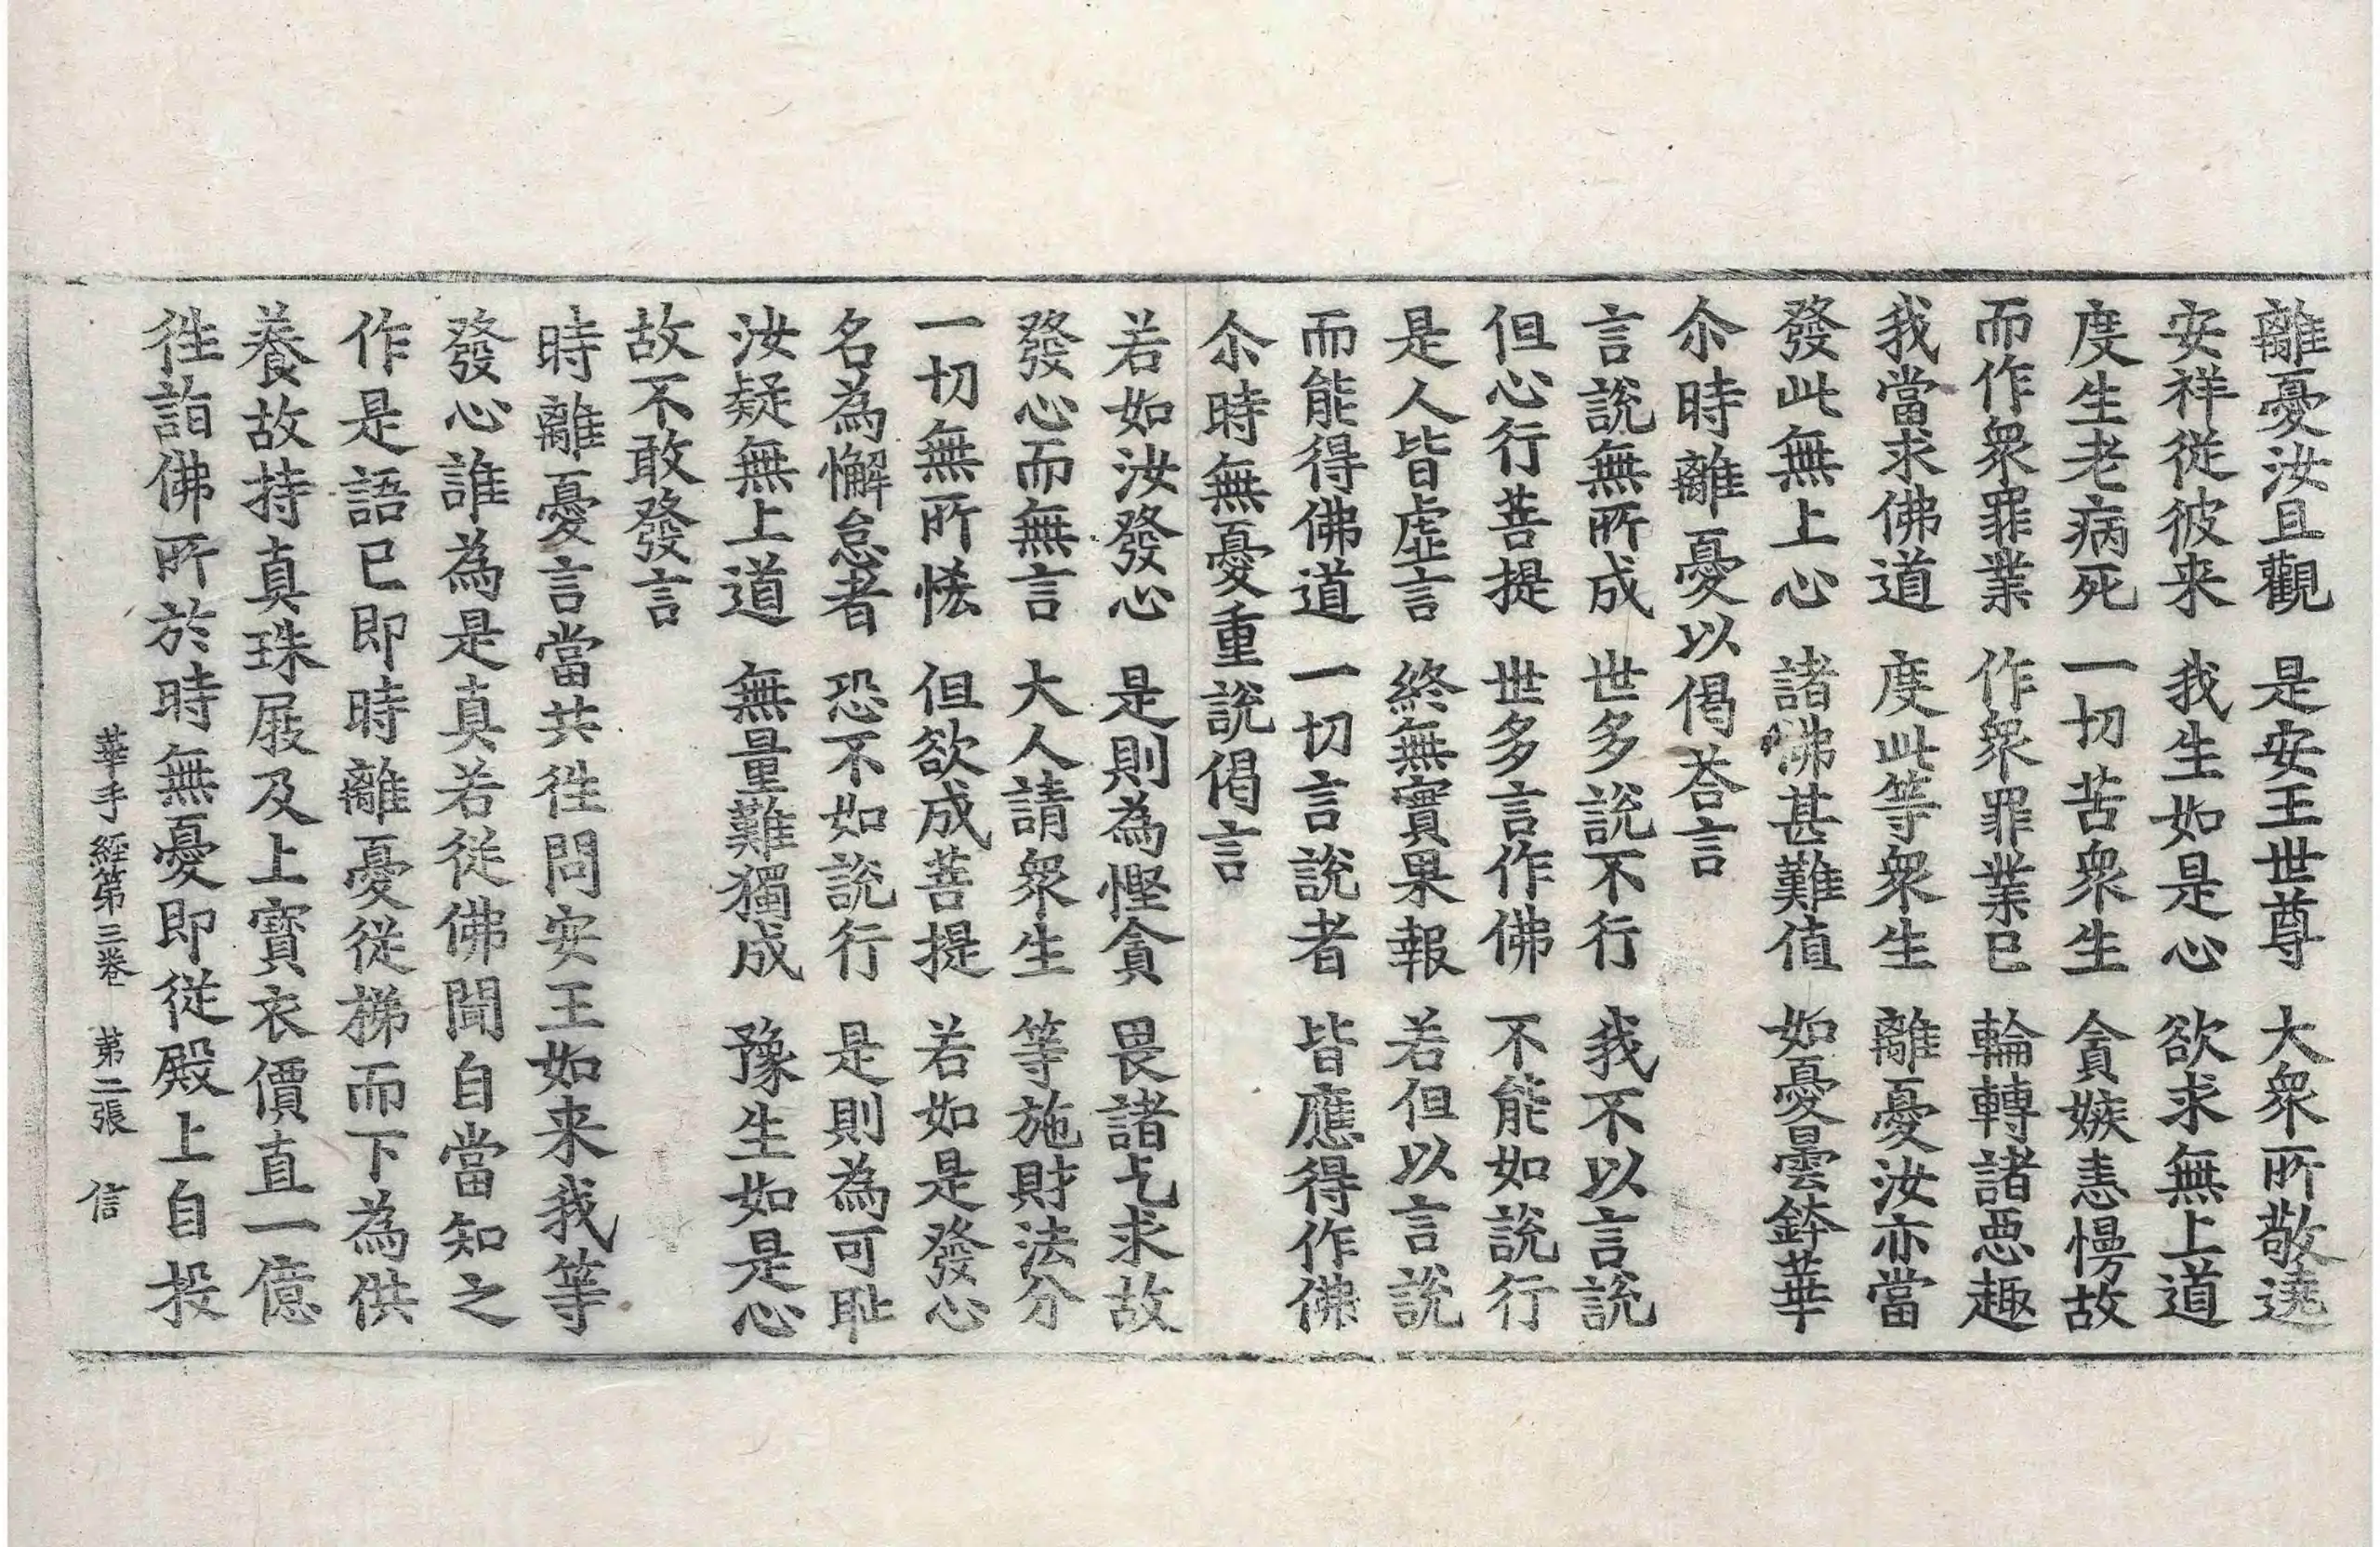 離憂汝且觀 是安王世尊 大衆所敬遶
安祥從彼来 我生如是心 欲求無上道
度生老病死 一切苦衆生 貪嫉恚慢故
而作衆罪業 作衆罪業已 輪轉諸惡趣
我當求佛道 度此等衆生 離憂汝亦當
發此無上心 諸佛甚難值 如憂曇鉢華
尒時離憂以偈荅言
言說無所成 世多說不行 我不以言說
但心行菩提 世多言作佛 不能如說行
是人皆虛言 終無實果報 若但以言說
而能得佛道 一切言說者 皆應得作佛
尒時無憂重說偈言
若如汝發心 是則為慳貪 畏諸乞求故
發心而無言 大人請衆生 等施財法分
一切無所恡 但欲成菩提 若如是發心
名為懈怠者 恐不如說行 是則為可耻
汝疑無上道 無量難獨成 豫生如是心
故不敢發言
時離憂言當共徃問安王如来我等
發心誰為是真若從佛聞自當知之
作是語已即時離憂從梯而下為供
養故持真珠屐及上寶衣價直一億
徃詣佛所於時無憂即從殿上自投
華手經第三卷 第二張 信